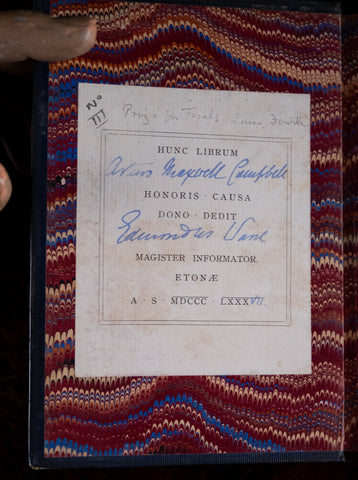 No
III
Prize for Trials
HUNC LIBRUM
Arturo Maxwell Campbell
HONORIS · CAUSA
DONO · DEDIT
Edmondus Warre
MAGISTER INFORMATOR.
ETONÆ
A · S · MDCCC · LXXXVII.